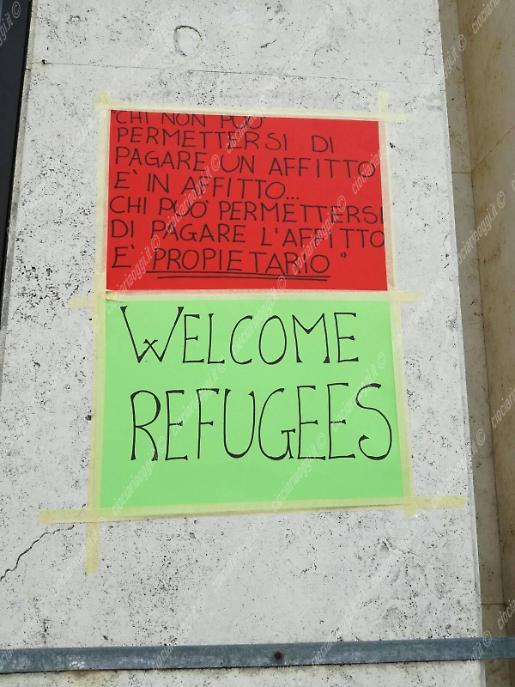 CHI NON PUO'
PERMETTERSI DI
PAGARE UN AFFITTO
E' IN AFFITTO...
CHI PUO' PERMETTERSI
DI PAGARE L'AFFITTO
E' PROPIETARIO"
WELCOME
REFUGEES